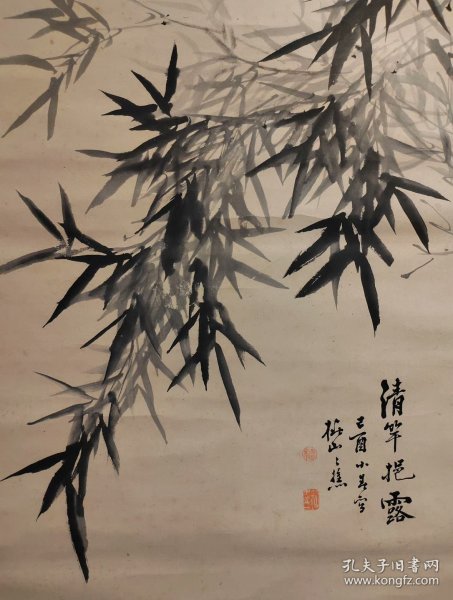 清竿挹露
己酉小春写
山之樵
孔夫子旧书网
www.kongfz.com